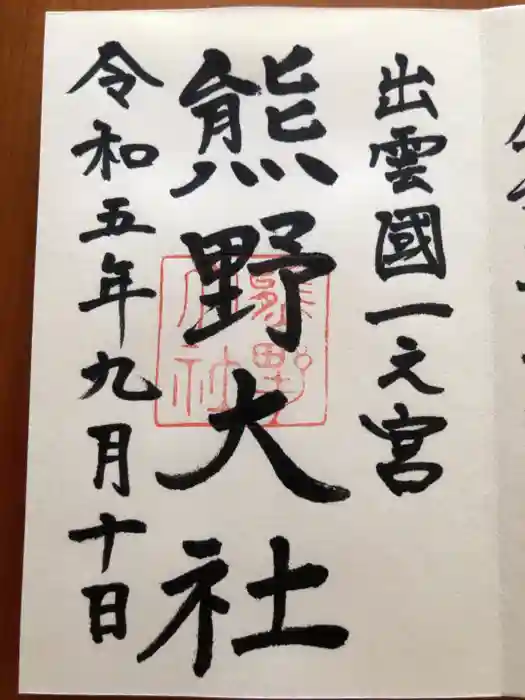 出雲國一之宮
熊野大社
熊野大社
令和五年九月十日